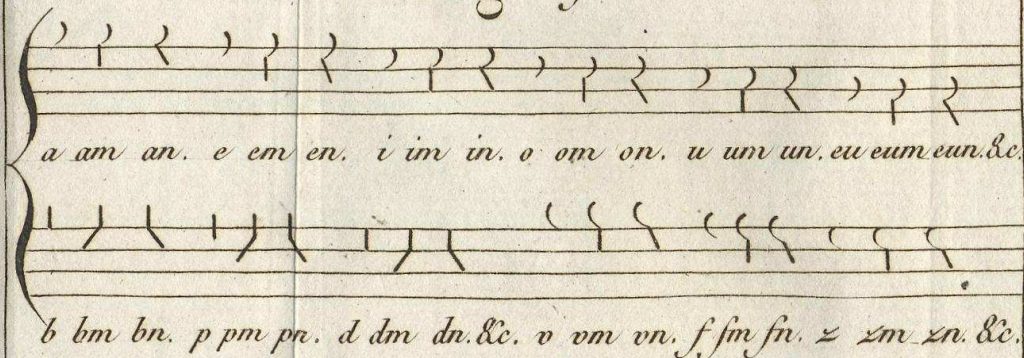 a am an. e em en. i im in. o om on. u um un. eu eum eun. &c.
b bm bn. p pm pn. d dm dn. &c. v vm vn. f fm fn. z zm zn. &c.